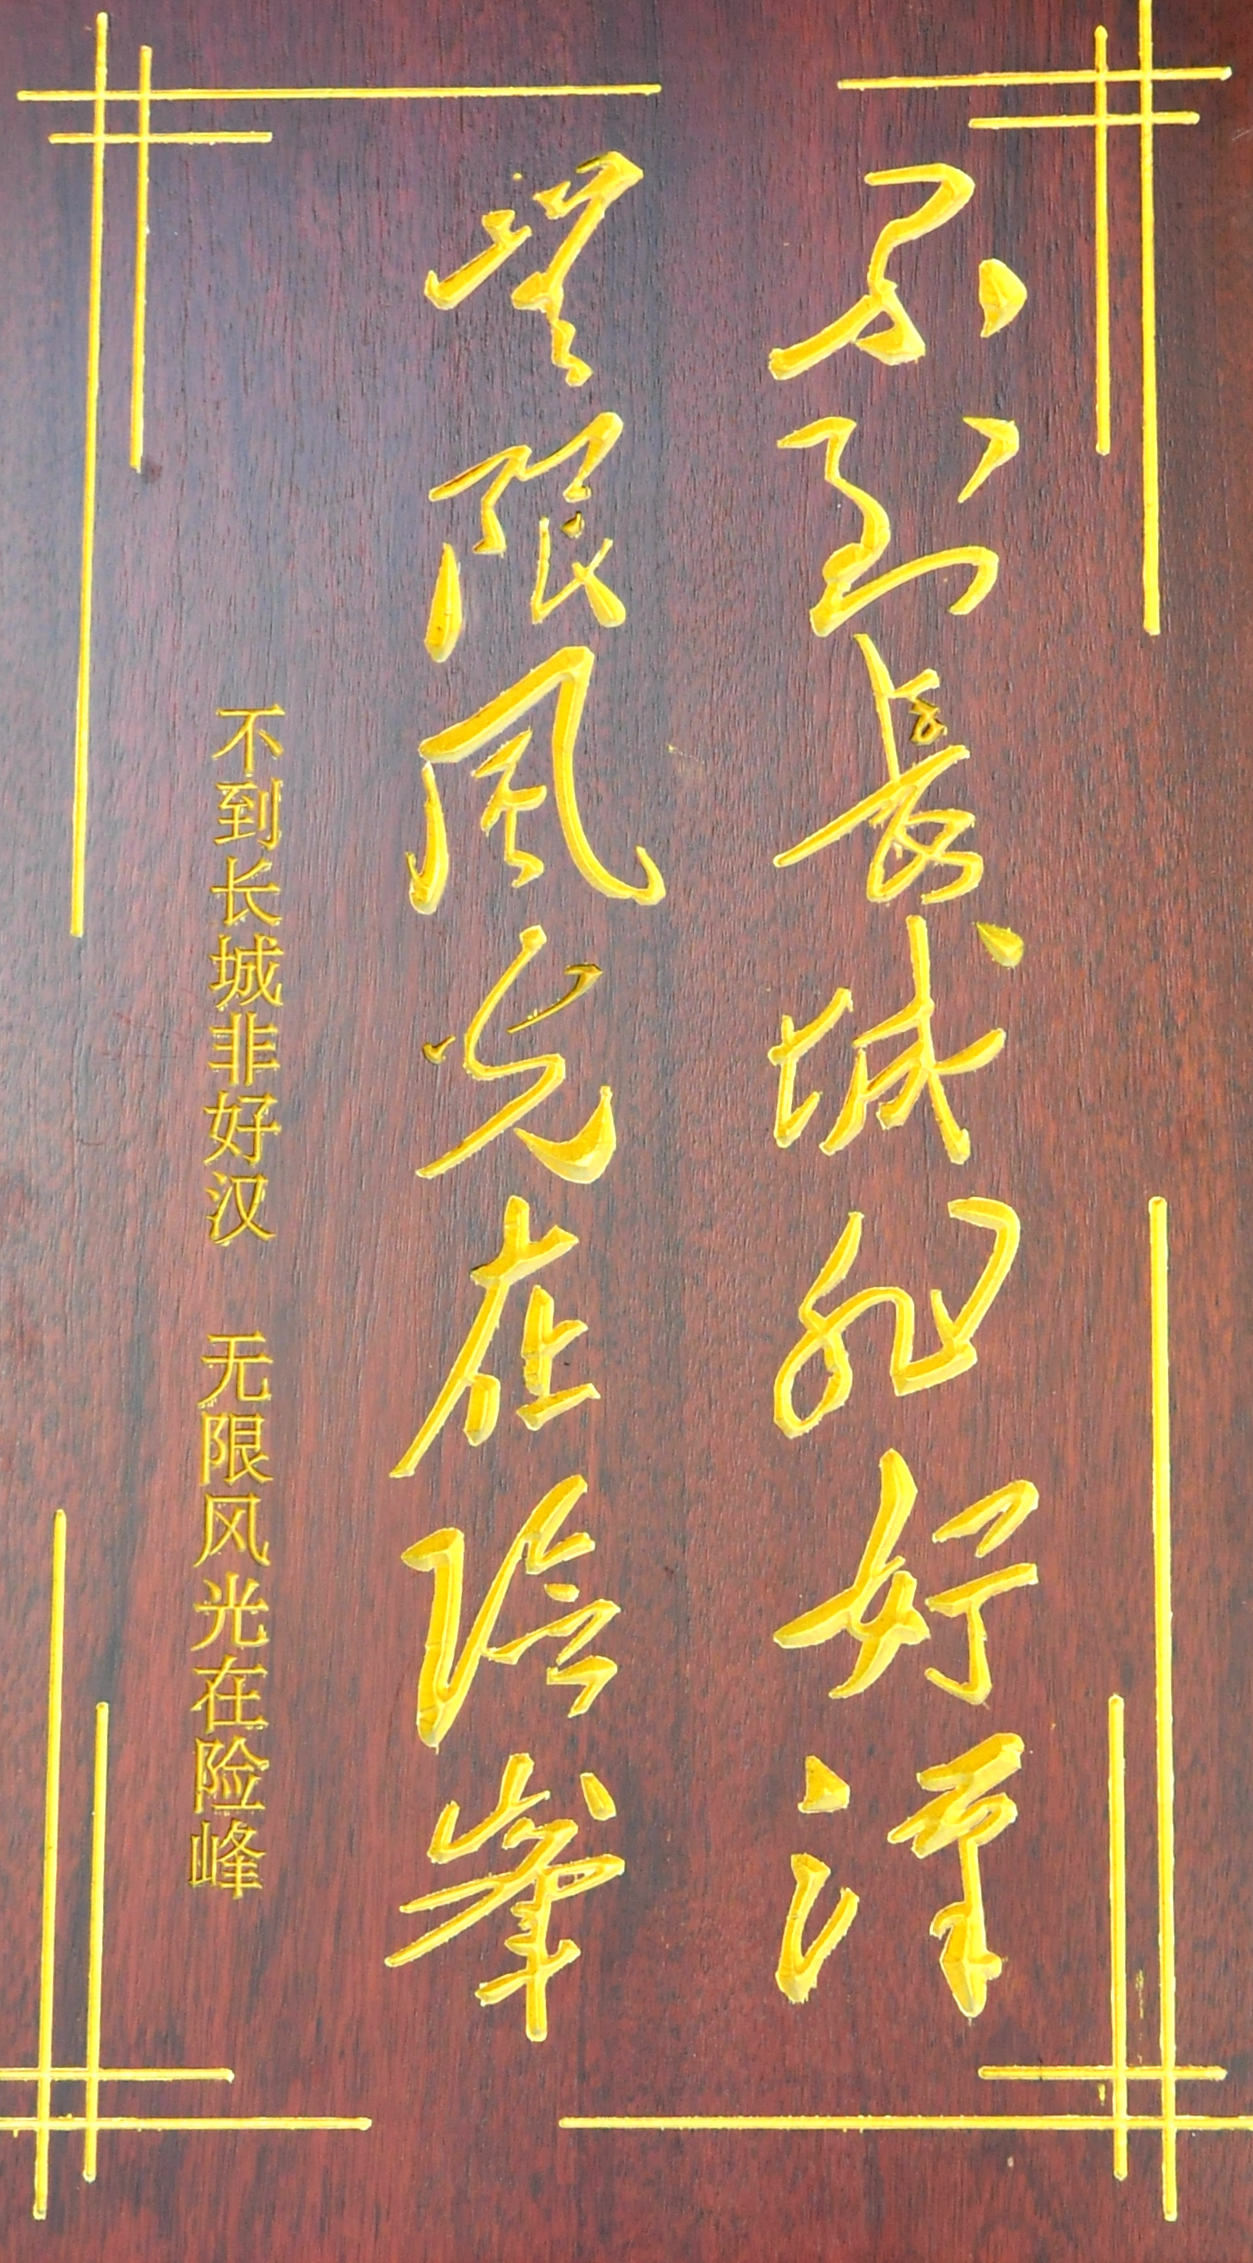 不到長城非好漢
無限風光在險峰
不到长城非好汉 无限风光在险峰